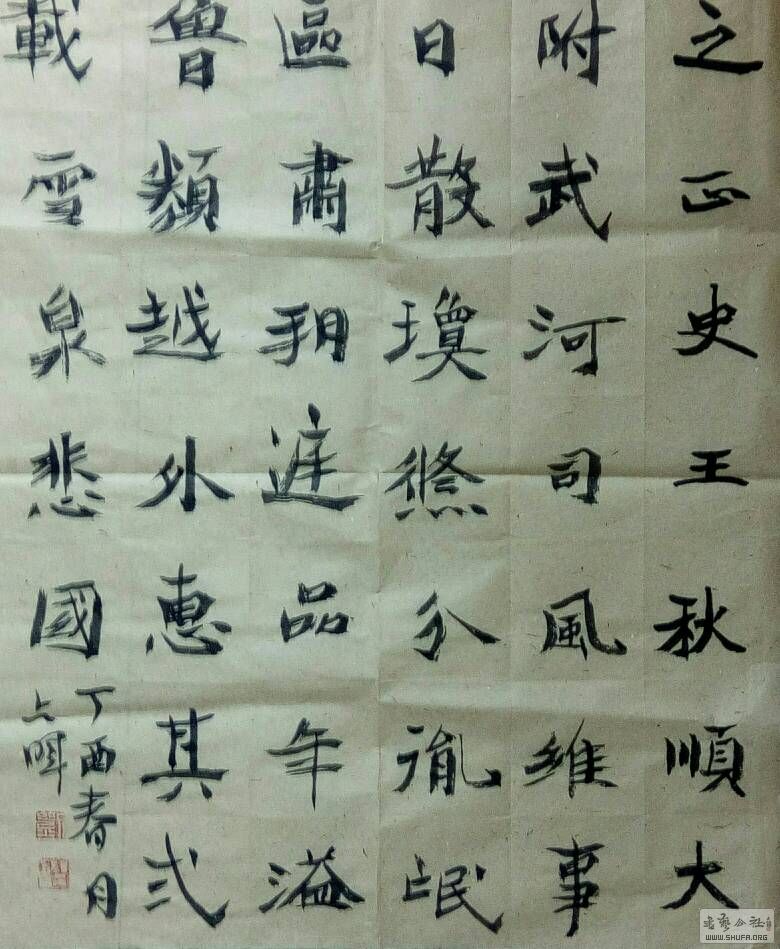 之正史王秋順大
附武河司風維事
日散瓊悠分胤氓
區肅翔遊品年溢
魯類越外惠其弍
載雪泉悲國
丁酉春月
WWW.SHUFA.ORG